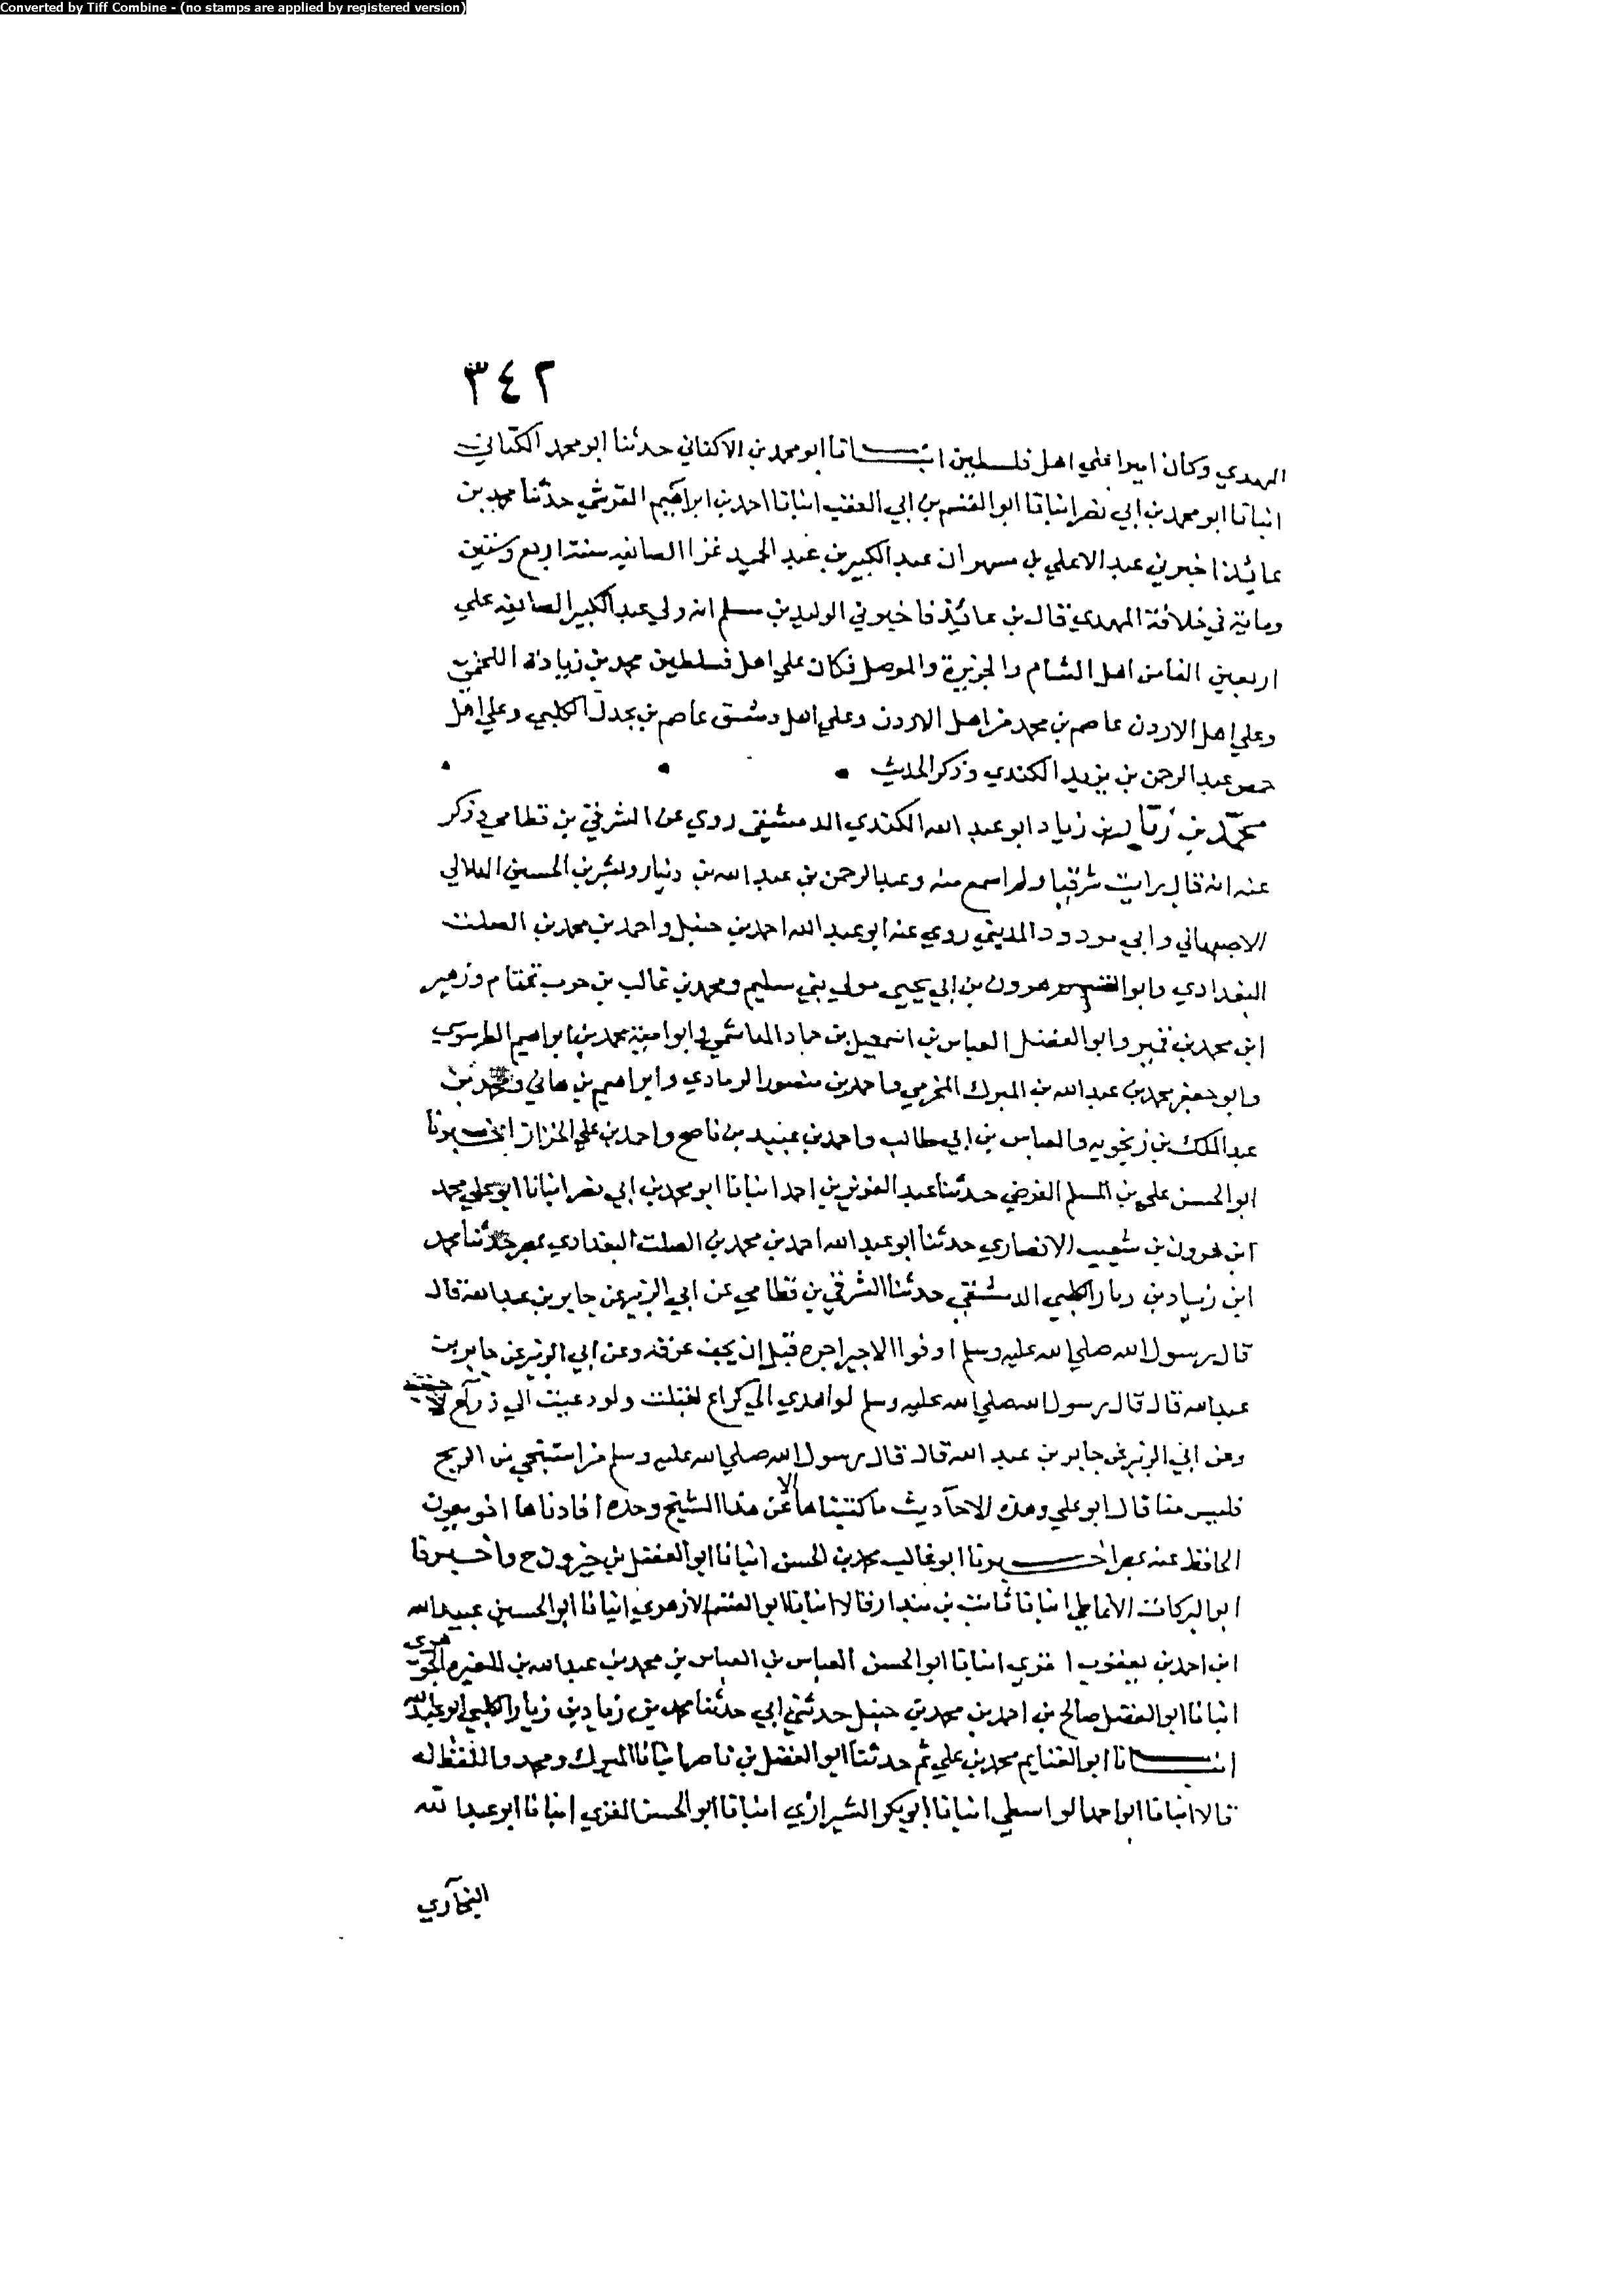 Converted by Tiff Combine - (no stamps are applied by registered version)
٣٤٢
المهدي وكان اميرا علي اهل فلسطين انبـانا ابو محمد بن الاكفاني حدثنا ابو محمد الكتاني
انبانا ابو محمد بن ابي نصر انبانا ابو القسم بن ابي العقب انبانا احمد بن ابراهيم القرشي حدثنا محمد بن
عائذ اخبرني عبد الاعلي بن مسهر ان عبد الكبير بن عبد الحميد غزا الصائفه سنة اربع وستين
ومائة في خلافة المهدي قال بن عائذ فاخبرني الوليد بن مسلم انه ولي عبد الكبير الصائفه علي
اربعين الفا من اهل الشام والجزيرة والموصل فكان علي اهل فلسطين محمد بن زيادة اللخمي
وعلي اهل الاردن عاصم بن محمد من اهل الاردن وعلي اهل دمشق عاصم بن بحدل الكلبي وعلي اهل
حمص عبد الرحمن بن يزيد الكندي وذكر الحديث
محمد بن زياد بن زبار ابو عبد الله الكندي الدمشقي روي عن الشرقي بن قطامي ذكر
عنه انه قال رايت شرقيا ولم اسمع منه وعبد الرحمن بن عبد الله بن دينار وبشر بن الحسين الهلالي
الاصبهاني وابي مودود المديني روي عنه ابو عبد الله احمد بن حنبل واحمد بن محمد بن الصلت
البغدادي وابو القسم هرون بن ابي يحيي مولي بني سليم ومحمد بن غالب بن حرب تمتام وزهير
ابن محمد بن قمير وابو الفضل العباس بن اسمعيل بن حماد الهاشمي وابو امية محمد بن ابراهيم الطرسوسي
وابو جعفر محمد بن عبد الله بن المبرك المخرمي واحمد بن منصور الرمادي وابراهيم بن هاني ومحمد بن
عبد الملك بن زنجويه والعباس بن ابي طالب واحمد بن عبيد بن ناصح واحمد بن علي الخزاز اخـبرنا
ابو الحسن علي بن المسلم الفرضي حدثنا عبد العزيز بن احمد انبانا ابو محمد بن ابي نصر انبانا ابو علي محمد
ابن هرون بن شعيب الانصاري حدثنا ابو عبد الله احمد بن محمد بن الصلت البغدادي بمصر حدثنا محمد
ابن زياد بن زبار الكلبي الدمشقي حدثنا الشرقي بن قطامي عن ابي الزبير عن جابر بن عبد الله قال
قال رسول الله صلي الله عليه وسلم اوفوا الاجير اجره قبل ان يجف عرقه وعن ابي الزبير عن جابر بن
عبد الله قال قال رسول الله صلي الله عليه وسلم لو اهدي الي كراع لقبلت ولو دعيت الي ذراع لاجبت
وعن ابي الزبير عن جابر بن عبد الله قال قال رسول الله صلي الله عليه وسلم من استنجي من الريح
فليس منا قال ابو علي وهذه الاحاديث ما كتبناها الا عن هذا الشيخ وحده افادناها اخو ميمون
الحافظ عنه بمصر اخـبرنا ابو غالب محمد بن الحسن انبانا ابو الفضل بن خيرون ح واخـبرنا
ابو البركات الانماطي انبانا ثابت بن بندار قالا انبانا ابو القسم الازهري انبانا ابو الحسين عبيد الله
ابن احمد بن يعقوب المقري انبانا ابو الحسن العباس بن العباس بن محمد بن عبد الله بن المغيره الجوهري
انبانا ابو الفضل صالح بن احمد بن محمد بن حنبل حدثني ابي حدثنا محمد بن زياد بن زبار الكلبي ابو عبد الله
انبـانا ابو الغنايم محمد بن علي ثم حدثنا ابو الفضل بن ناصر انبانا المبرك ومحمد واللفظ له
قالا انبانا ابو احمد الواسطي انبانا ابو بكر الشيرازي انبانا ابو الحسن المقري انبانا ابو عبد الله
البخاري